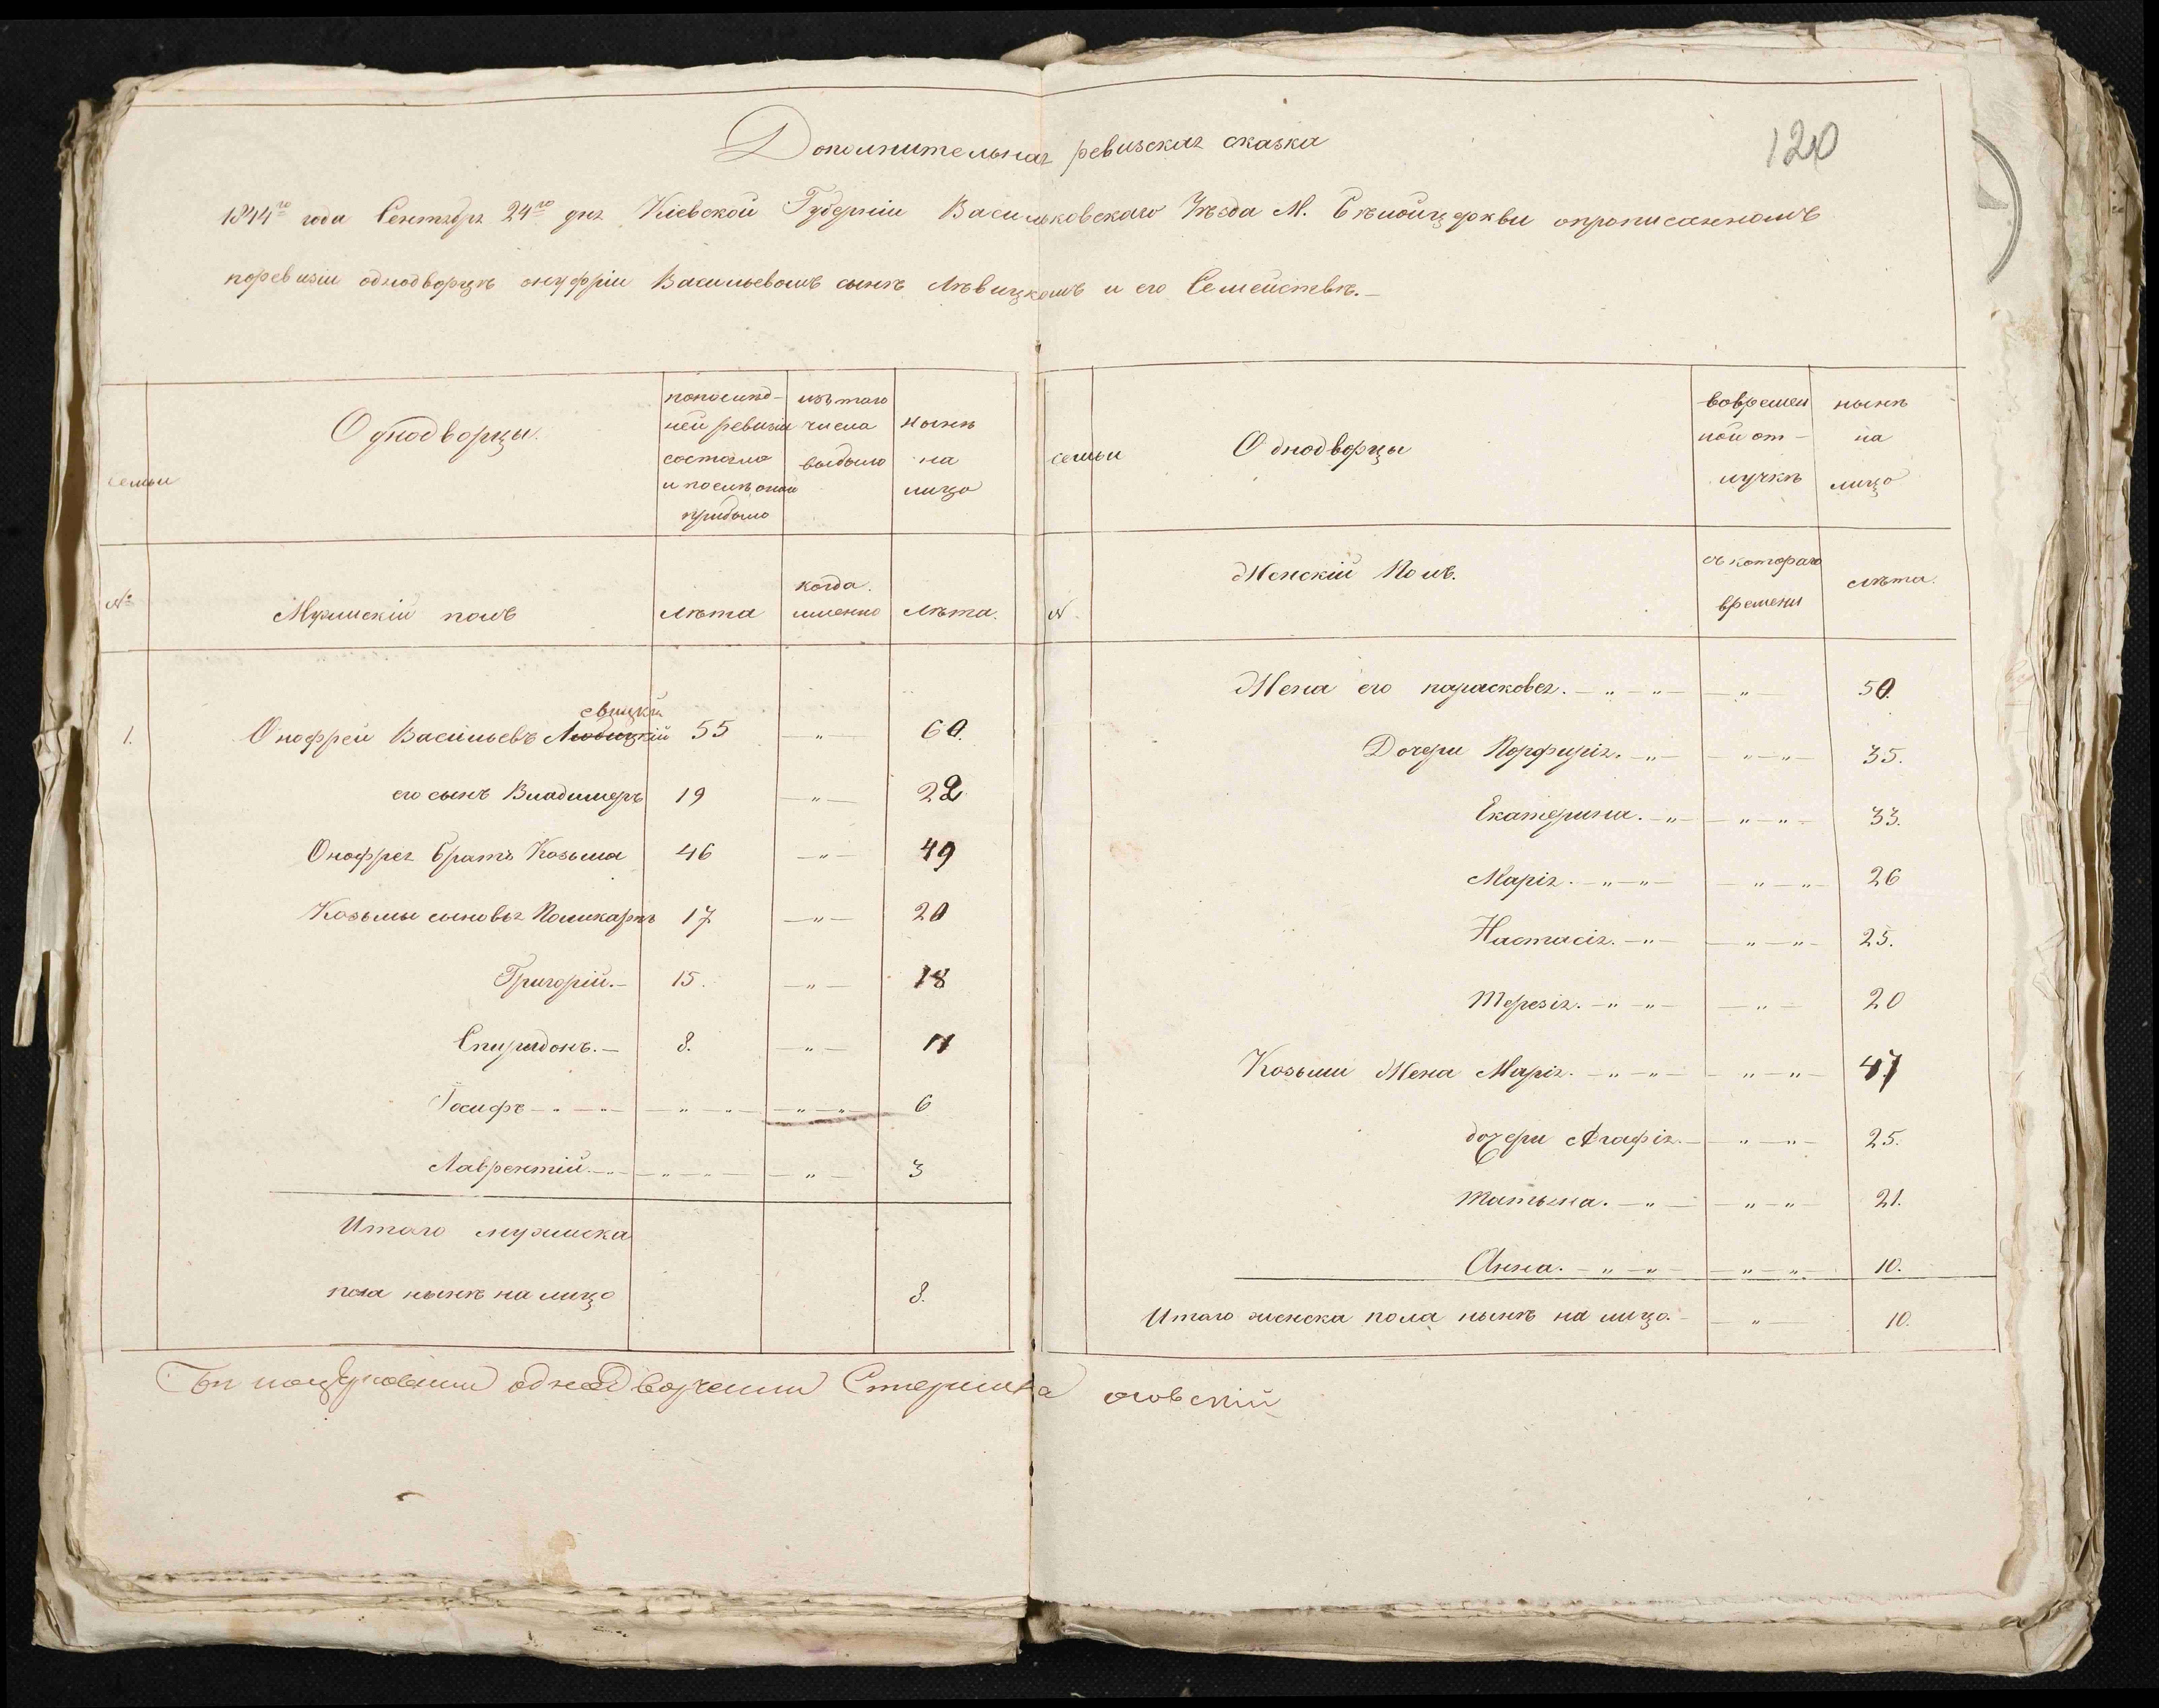 Дополнительная ревизская сказка
120
1844го года Сентября 24го дня Кіевской Губерніи Васильковскаго Уѣзда М. Бѣлойцеркви опрописанномъ
поревизіи однодворцѣ онуфріи Васильевомъ сынѣ Лѣвицкомъ и его Семействѣ.—
семьи
Однодворцы.
попослѣд-
ней ревизіи
состояло
и послѣ оной
прибыло
изъ того
числа
выбыло
нынѣ
на
лицо
№
Мужискій полъ
Лѣта
когда
именно
Лѣта.
1.
евицкій
Онофрей Васильевъ Любицкій 55 — " — 60.
его сынъ Владимеръ 19 — " — 22.
Онофрея братъ Козьма 46 — " — 49
Козьмы сыновья Поликарпъ 17 — " — 20
Григорій.— 15. — " — 18
Спиридонъ.— 8. — " — 11
Іосифъ — " — " — — " — " — — " — " — 6
Лаврентій.— " — — " — " — — " — 3
Итого мужиска
пола нынѣ на лицо 8.
семьи
Однодворцы
вовремен
ной от-
лучкѣ
нынѣ
на
лицо
N
Женскій Полъ.
съ котораго
времени
Лѣта.
Жена его парасковея. — " — " — — " — 50.
Дочери Порфирія. — " — — " — " — 35.
Екатерина. — " — — " — " — 33.
Марія. — " — " — — " — " — 26
Настасія. — " — — " — " — 25.
Терезія. — " — " — — " — 20
Козьми Жена Марія. — " — " — — " — " — 47
дочери Агафія. — — " — " — 25.
Татьяна. — " — — " — " — 21.
Анна. — " — " — — " — " — 10.
Итого женска пола нынѣ на лицо. — — " — 10.
однодворческий Старшина